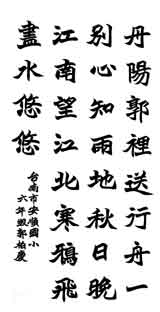 丹陽郭裡送行舟一
別心知兩地秋日晚
江南望江北寒鴉飛
盡水悠悠
台南市安順國小
六年郭慶